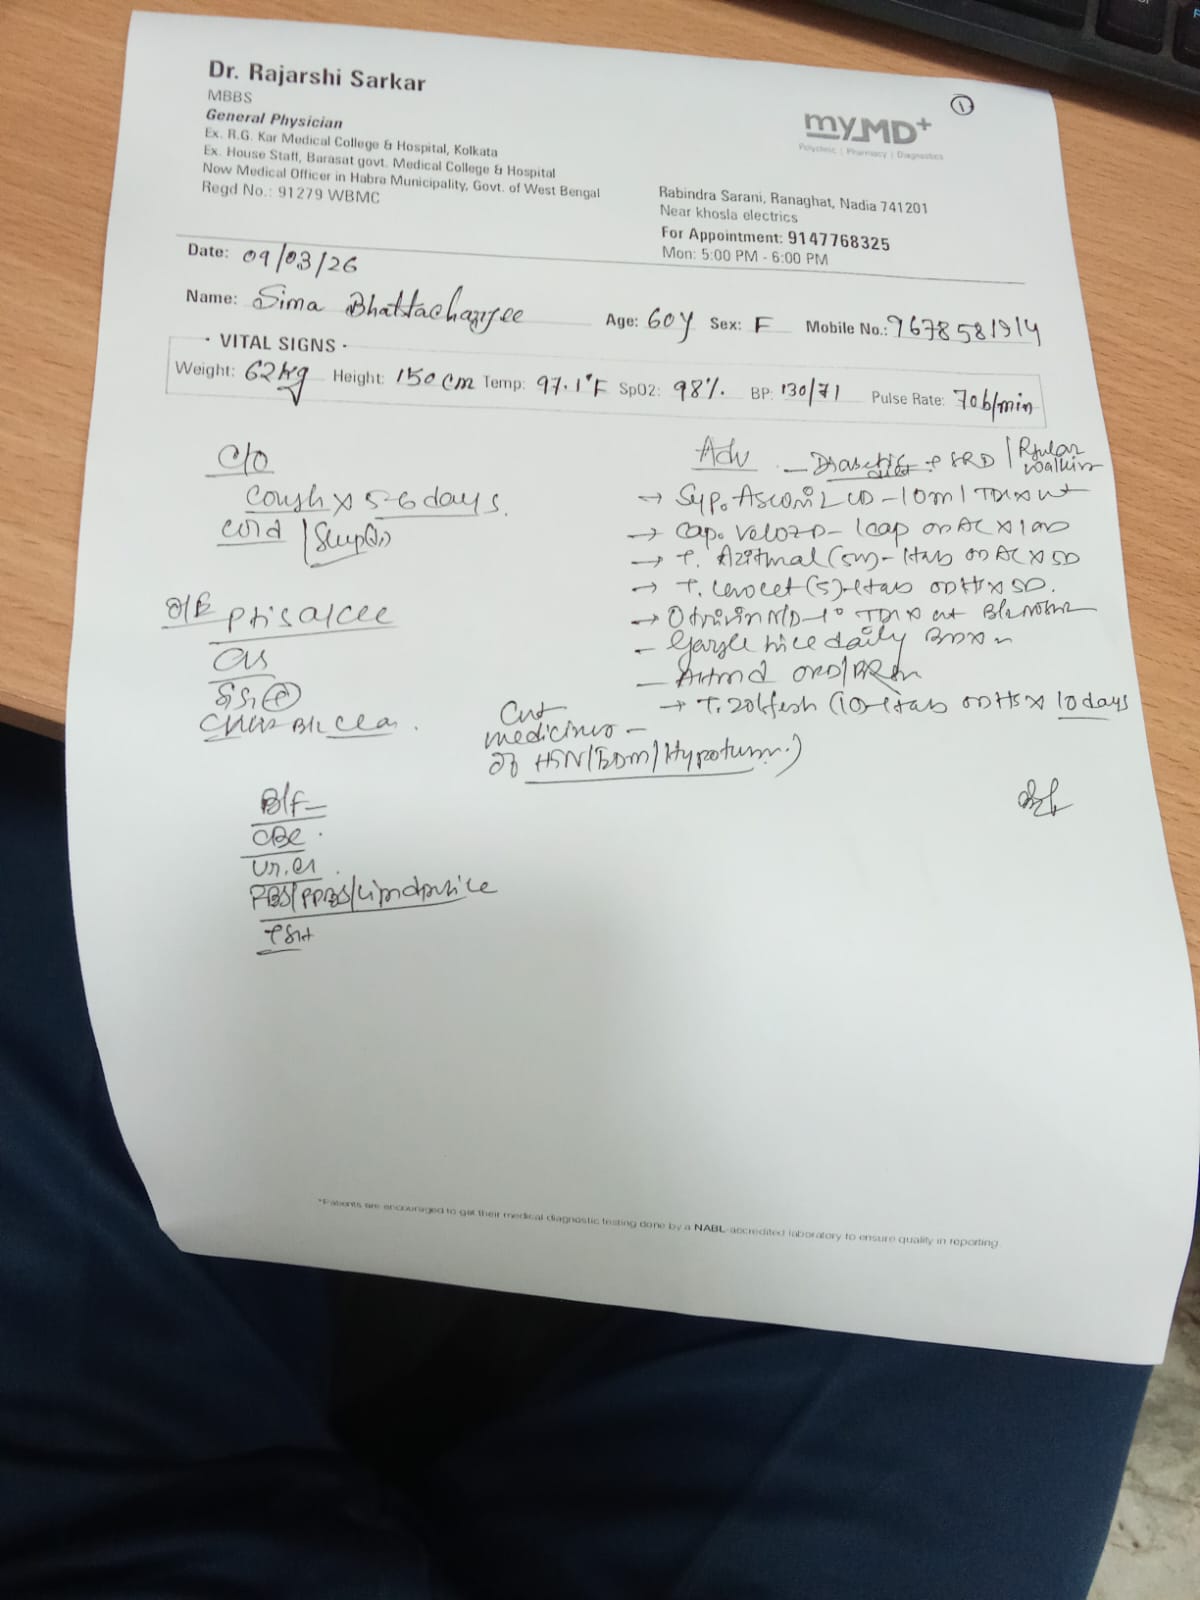 Dr. Rajarshi Sarkar
MBBS
General Physician
Ex. R.G. Kar Medical College & Hospital, Kolkata
Ex. House Staff, Barasat govt. Medical College & Hospital
Now Medical Officer in Habra Municipality, Govt. of West Bengal
Regd No.: 91279 WBMC
1
my.MD+
Polyclinic | Pharmacy | Diagnostics
Rabindra Sarani, Ranaghat, Nadia 741201
Near khosla electrics
For Appointment: 9147768325
Mon: 5:00 PM - 6:00 PM
Date: 09/03/26
Name: Sima Bhattacharjee Age: 60y Sex: F Mobile No.: 9678581914
· VITAL SIGNS ·
Weight: 62kg Height: 150cm Temp: 97.1°F SpO2: 98% BP: 130/71 Pulse Rate: 70b/min
C/O
Cough x 5-6 days.
cold / Sleep
O/E
CVS
S1S2
Chest B/L Clear.
Adv - Diabetic diet + SRD / Regular walking
→ Syp. Ascoril LS - 10ml TDS x
→ Cap. Veloz D - 1cap OD AC x 10D
→ T. Azithral (500) - 1tab OD AC x 5D
→ T. Levocet (5) - 1tab OD HS x 5D.
→ Otrivin
- Gargle daily
-
→ T. Zolfresh (10) - 1tab OD HS x 10 days
Cont
medicines -
of HTN/T2DM/Hypothy..)
B/F -
CBC.
Ur, Cr.
FBS/PPBS/Lipid profile
TSH
*Patients are encouraged to get their medical diagnostic testing done by a NABL accredited laboratory to ensure quality in reporting.